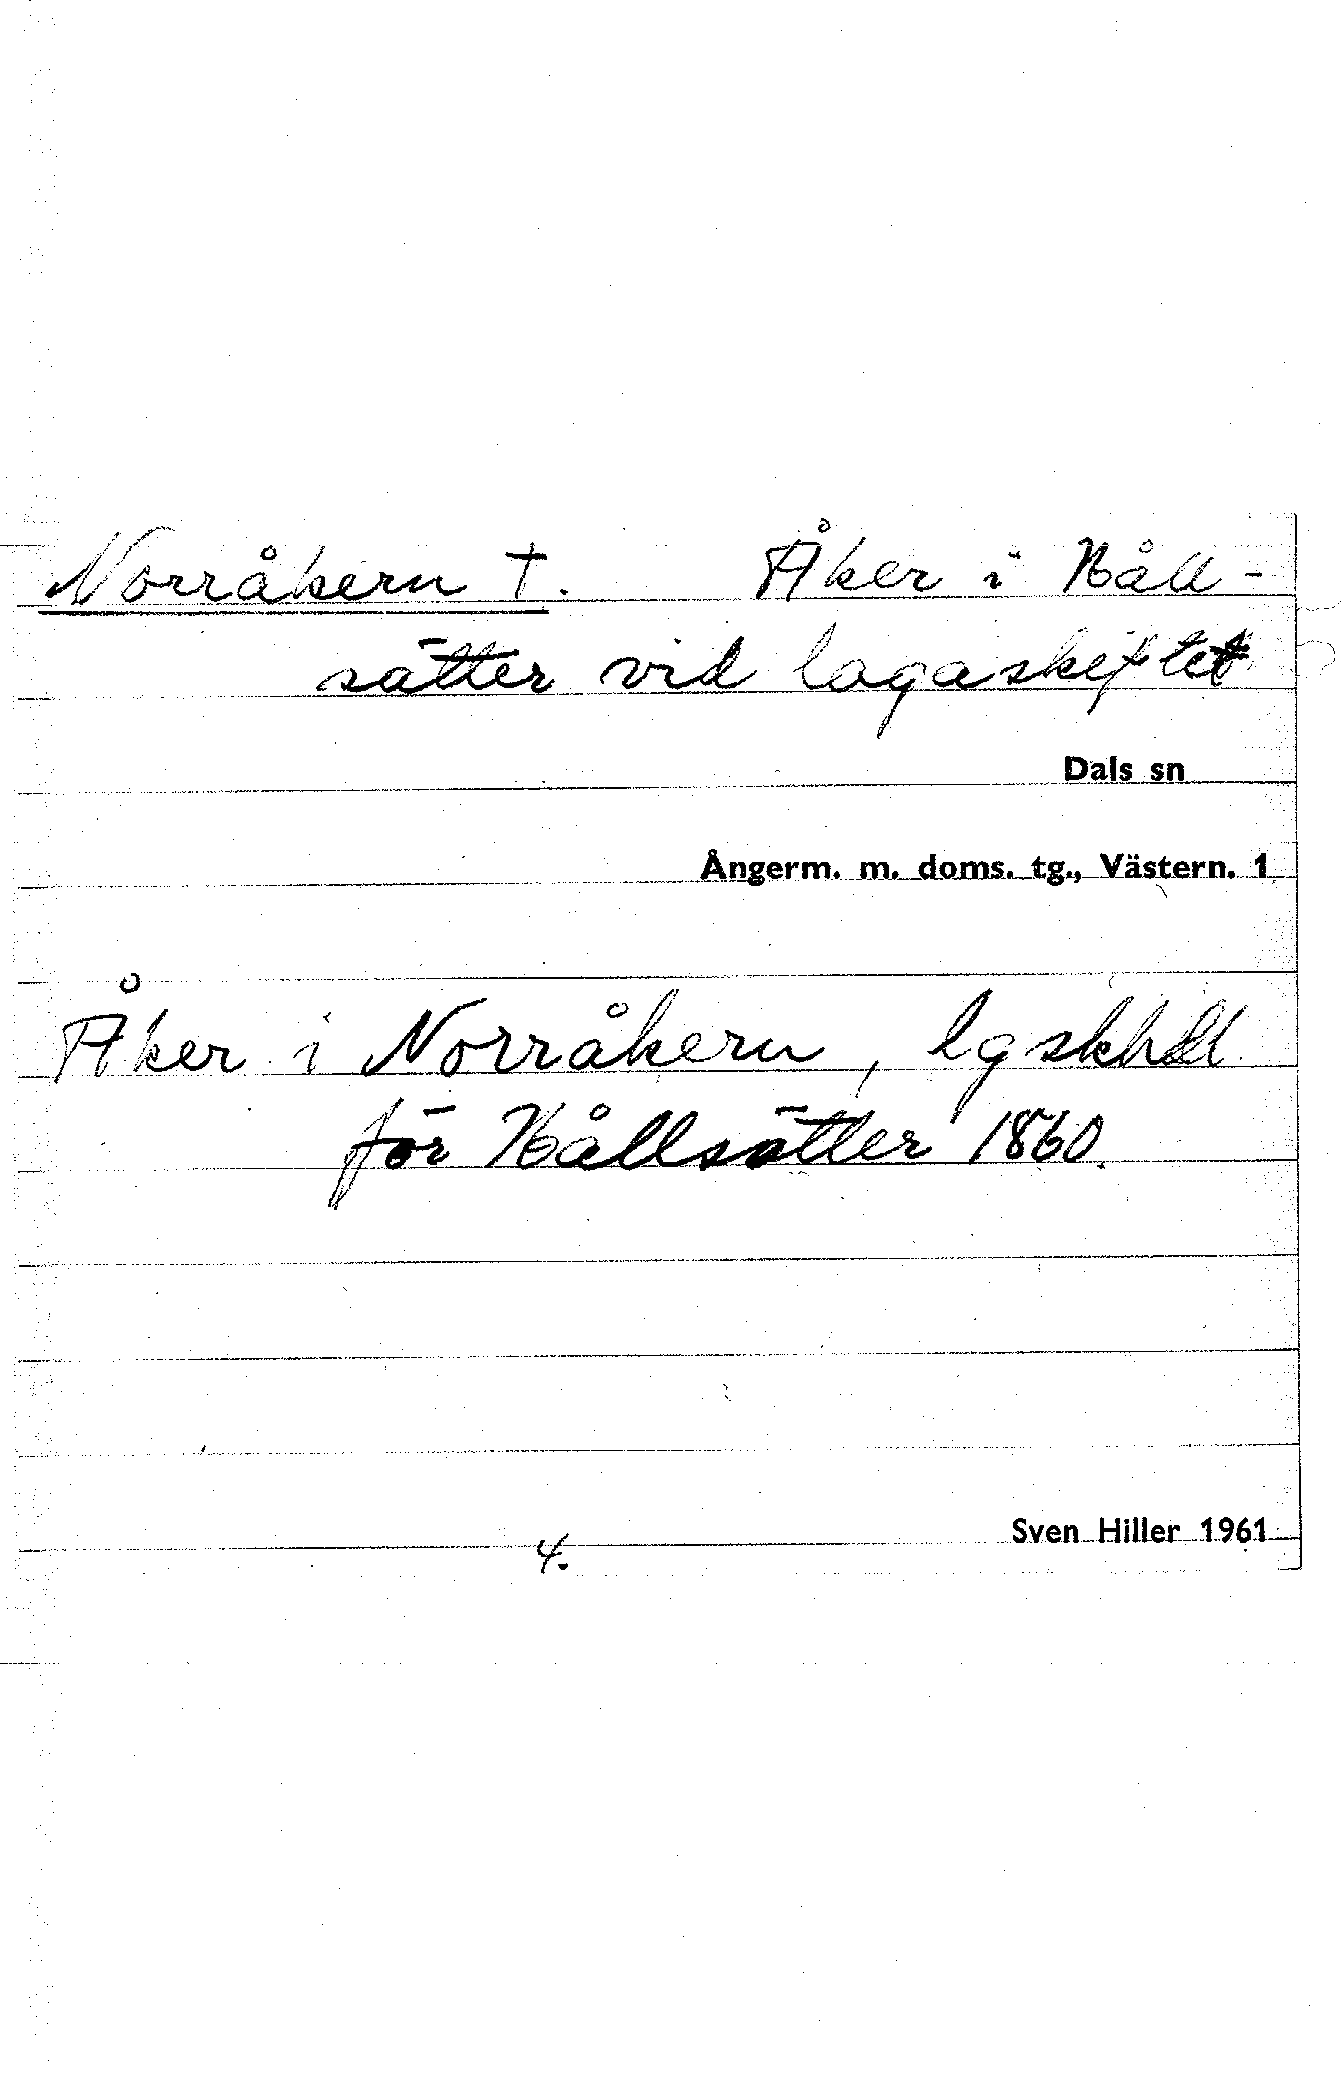 Norråkern †. Åker i Håll-
sätter vid lagaskiftet
Dals sn
Ångerm. m. doms. tg., Västern. 1
Åker i Norråkern, lgskhdl
för Hållsätter 1860.
Sven Hiller 1961
4.